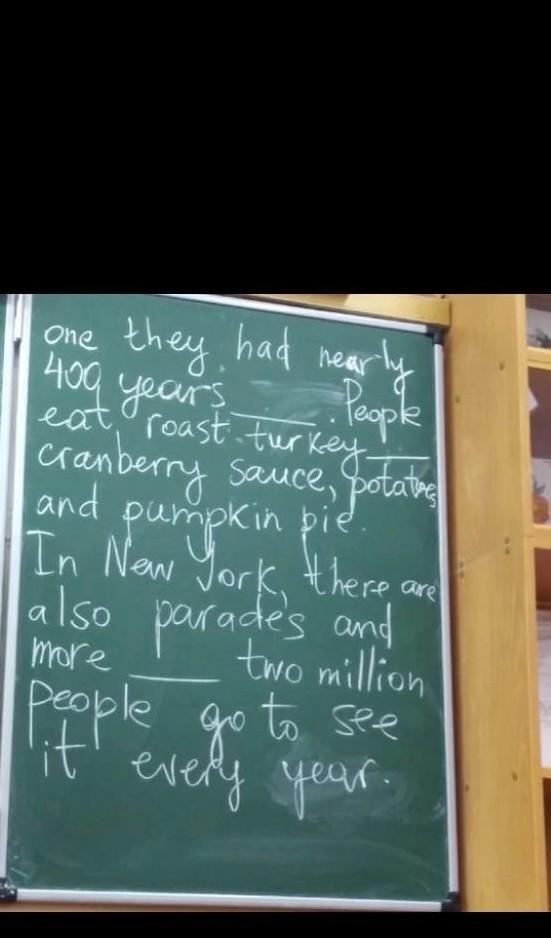 one they had nearly
400 years ____. People
eat roast turkey ____
cranberry sauce, potatoes
and pumpkin pie.
In New York, there are
also parades and
more ____ two million
people go to see
it every year.